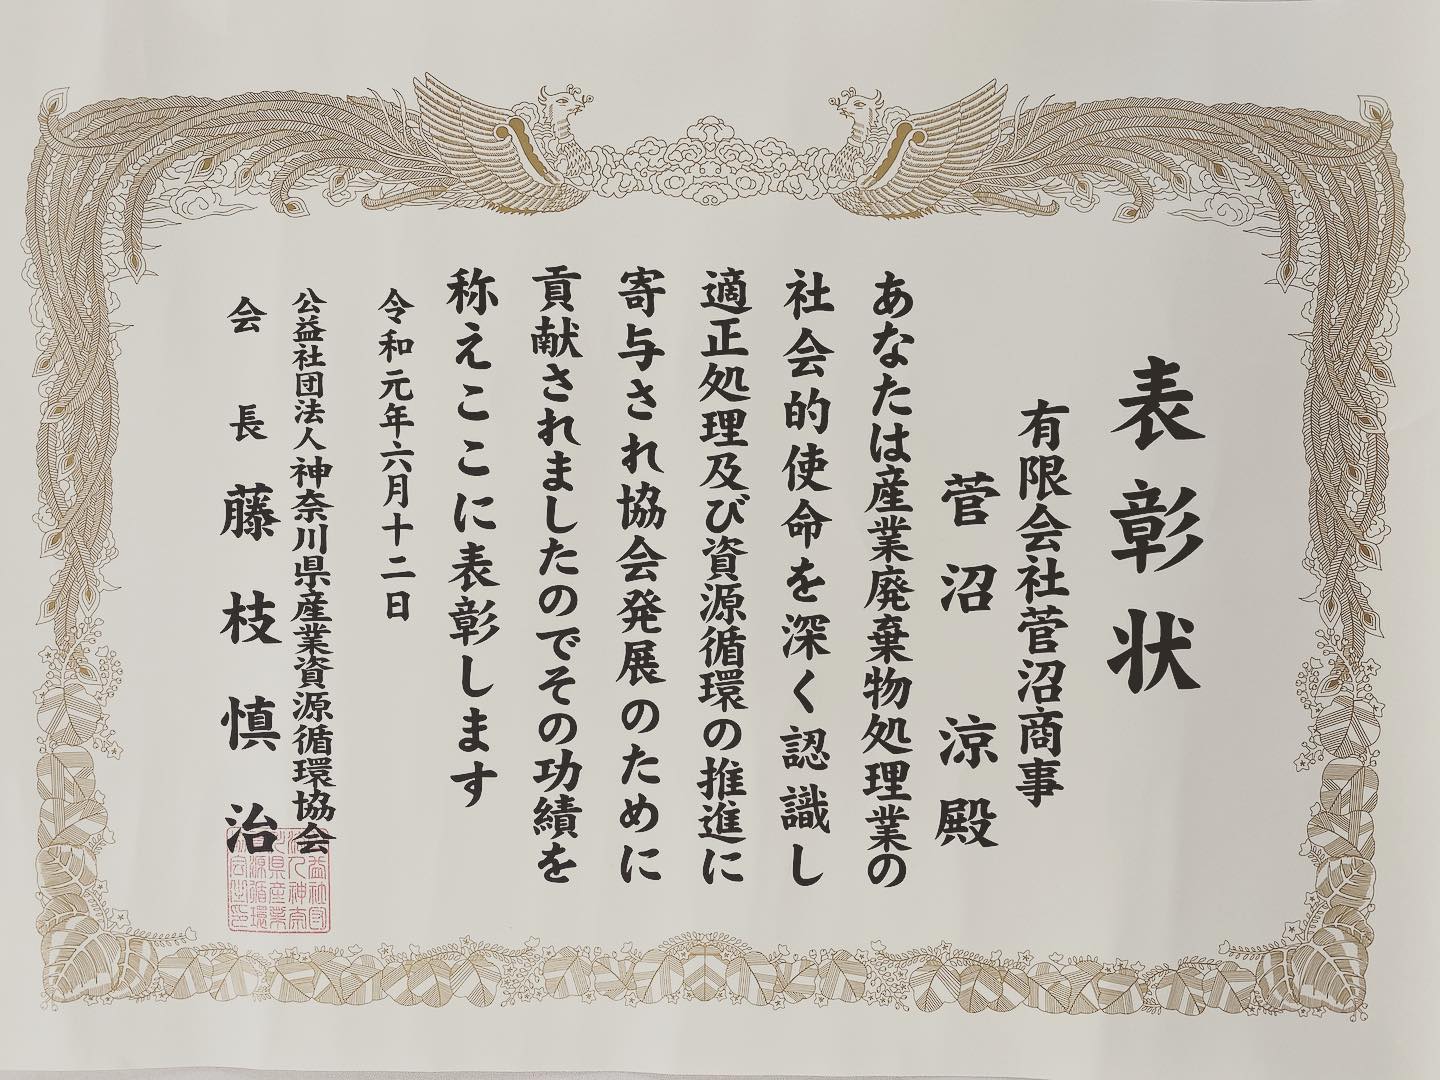 表彰状
有限会社菅沼商事
菅沼 涼殿
あなたは産業廃棄物処理業の
社会的使命を深く認識し
適正処理及び資源循環の推進に
寄与され協会発展のために
貢献されましたのでその功績を
称えここに表彰します
令和元年六月十二日
公益社団法人神奈川県産業資源循環協会
会長 藤枝慎治